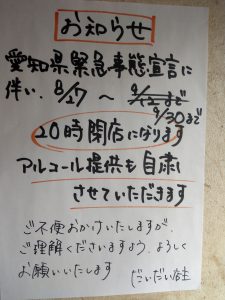 お知らせ
愛知県緊急事態宣言に
伴い、8/27 ～ 9/12まで
9/30まで
20時閉店になります
アルコール提供も自粛
させていただきます
ご不便おかけいたしますが、
ご理解くださいますよう、よろしく
お願いいたします だいだい店主